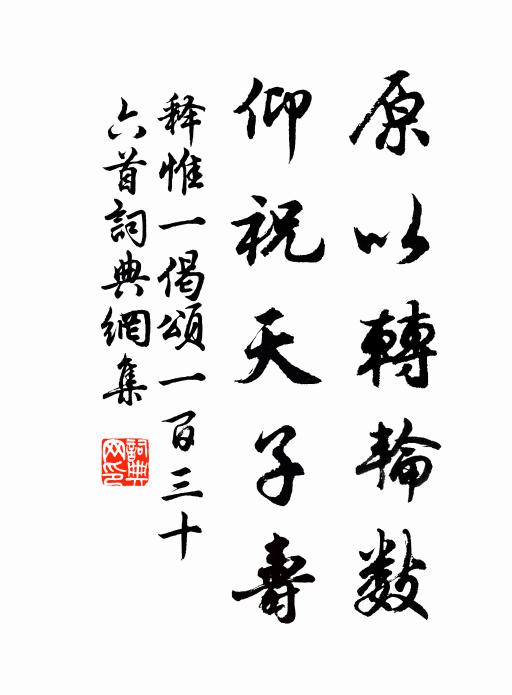 原以轉輪数
仰祝天子壽
释惟一偈頌一百三十
六首詞典網集
詞典网印